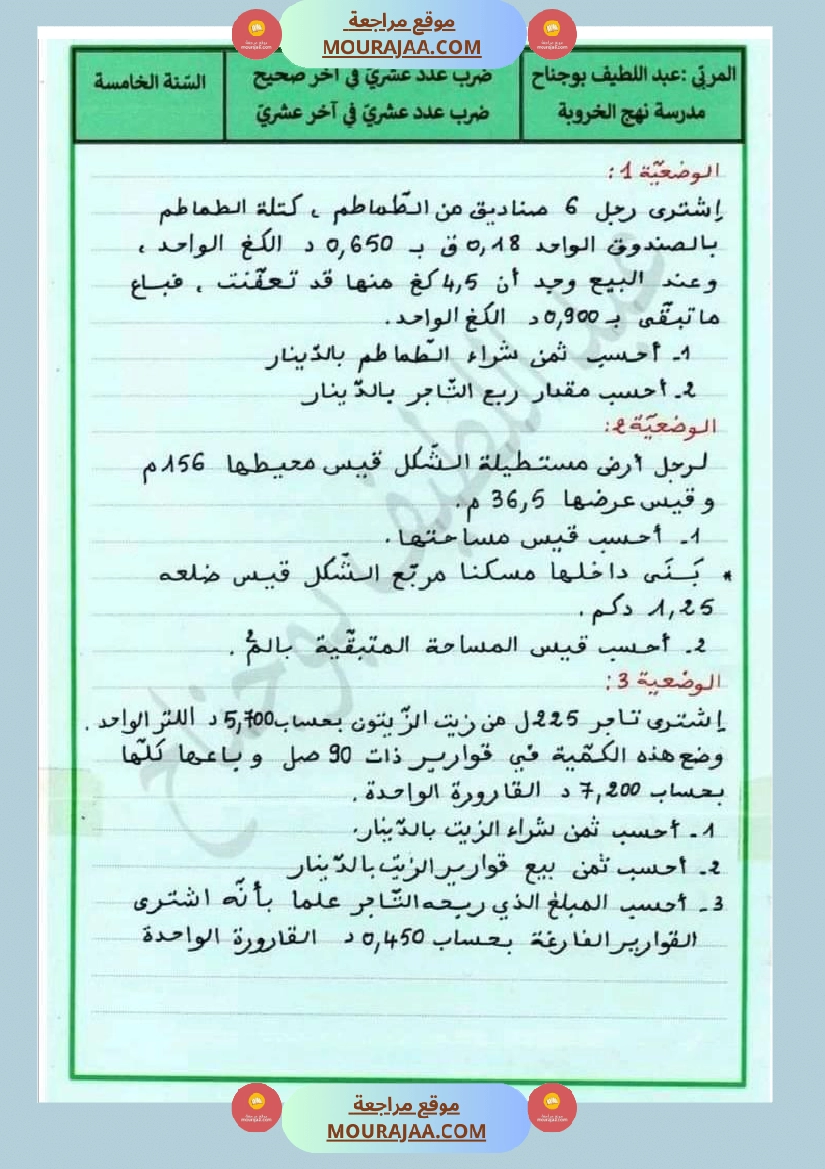 موقع مراجعة
MOURAJAA.COM
المربّي :عبد اللطيف بوجناح
مدرسة نهج الخروبة
ضرب عدد عشريّ في آخر صحيح
ضرب عدد عشريّ في آخر عشريّ
السّنة الخامسة
الوضعيّة 1:
إشترى رجل 6 صناديق من الطّماطم ، كتلة الطماطم
بالصندوق الواحد 0,18 ق بـ 0,650 د الكغ الواحد ،
وعند البيع وجد أن 4,5 كغ منها قد تعفّنت ، فباع
ما تبقّى بـ 0,900 د الكغ الواحد.
1ـ أحسب ثمن شراء الطّماطم بالدّينار
2ـ أحسب مقدار ربح التّاجر بالدّينار
الوضعيّة 2:
لرجل أرض مستطيلة الشّكل قيس محيطها 156 م
و قيس عرضها 36,5 م.
1ـ أحسب قيس مساحتها.
* بَنَى داخلها مسكنا مربّع الشّكل قيس ضلعه
1,25 دكم .
2ـ أحسب قيس المساحة المتبقّية بالم² .
الوضعية 3:
إشترى تاجر 225 ل من زيت الزّيتون بحساب 5,700 د اللتر الواحد .
وضع هذه الكمّية في قوارير ذات 90 صل و باعها كلّها
بحساب 7,200 د القارورة الواحدة .
1ـ أحسب ثمن شراء الزيت بالدّينار.
2ـ أحسب ثمن بيع قوارير الزيت بالدّينار
3ـ أحسب المبلغ الذي ربحه التّاجر علما بأنّه اشترى
القوارير الفارغة بحساب 0,450 د القارورة الواحدة
عبد اللطيف بوجناح
موقع مراجعة
MOURAJAA.COM